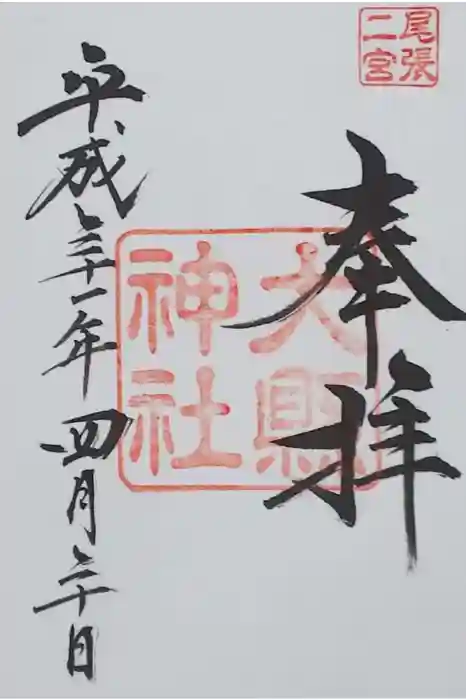 尾張
二宮
奉拝
大縣
神社
平成三十一年四月三十日